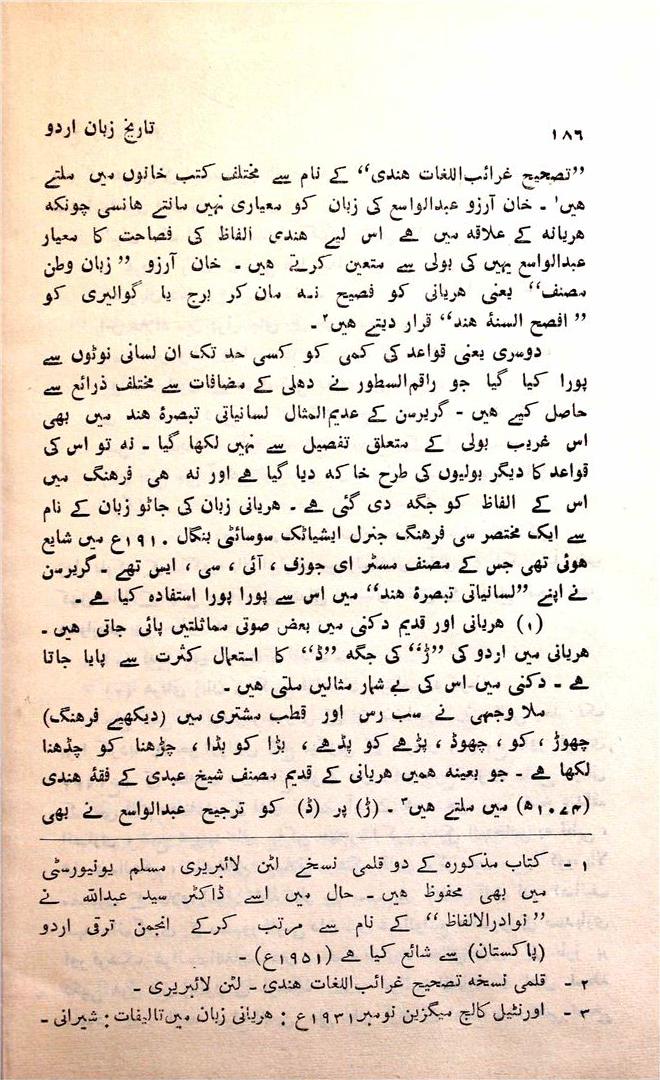 ۱۸۶ تاریخ زبان اردو
”تصحیح غرائب‌اللغات ہندی“ کے نام سے مختلف کتب خانوں میں ملتے
ہیں۱ ۔ خان آرزو عبدالواسع کی زبان کو معیاری نہیں مانتے ہانسی چونکہ
ہریانہ کے علاقہ میں ہے اس لیے ہندی الفاظ کی فصاحت کا معیار
عبدالواسع یہیں کی بولی سے متعین کرتے ہیں ۔ خان آرزو ”زبان وطن
مصنف“ یعنی ہریانی کو فصیح نہ مان کر برج یا گوالیری کو
”افصح السنۂ ہند“ قرار دیتے ہیں۲ ۔
دوسری یعنی قواعد کی کمی کو کسی حد تک ان لسانی نوٹوں سے
پورا کیا گیا جو راقم‌السطور نے دہلی کے مضافات سے مختلف ذرائع سے
حاصل کیے ہیں ۔ گریرسن کے عدیم‌المثال لسانیاتی تبصرۂ ہند میں بھی
اس غریب بولی کے متعلق تفصیل سے نہیں لکھا گیا ۔ نہ تو اس کی
قواعد کا دیگر بولیوں کی طرح خاکہ دیا گیا ہے اور نہ ہی فرہنگ میں
اس کے الفاظ کو جگہ دی گئی ہے ۔ ہریانی زبان کی جاٹو زبان کے نام
سے ایک مختصر سی فرہنگ جنرل ایشیاٹک سوسائٹی بنگال ۱۹۱۰ع میں شایع
ہوئی تھی جس کے مصنف مسٹر ای جوزف ، آئی ، سی ، ایس تھے ۔ گریرسن
نے اپنے ”لسانیاتی تبصرۂ ہند“ میں اس سے پورا پورا استفادہ کیا ہے ۔
(۱) ہریانی اور قدیم دکنی میں بعض صوتی مماثلتیں پائی جاتی ہیں ۔
ہریانی میں اردو کی ”ڑ“ کی جگہ ”ڈ“ کا استعمال کثرت سے پایا جاتا
ہے ۔ دکنی میں اس کی بے شمار مثالیں ملتی ہیں ۔
ملا وجہی نے سب رس اور قطب مشتری میں (دیکھیے فرہنگ)
چھوڑ ، کو ، چھوڈ ، پڑھے کو پڈھے ، بڑا کو بڈا ، چڑھنا کو چڈھنا
لکھا ہے ۔ جو بعینہ ہمیں ہریانی کے قدیم مصنف شیخ عبدی کے فقۂ ہندی
(۱۰۷۴ھ) میں ملتے ہیں۳ ۔ (ڑ) پر (ڈ) کو ترجیح عبدالواسع نے بھی
۱ ۔ کتاب مذکورہ کے دو قلمی نسخے لٹن لائبریری مسلم یونیورسٹی
میں بھی محفوظ ہیں ۔ حال میں اسے ڈاکٹر سید عبداللہ نے
”نوادرالالفاظ“ کے نام سے مرتب کرکے انجمن ترقی اردو
(پاکستان) سے شائع کیا ہے (۱۹۵۱ع) ۔
۲ ۔ قلمی نسخہ تصحیح غرائب‌اللغات ہندی ۔ لٹن لائبریری ۔
۳ ۔ اورنٹیل کالج میگزین نومبر ۱۹۳۱ع : ہریانی زبان میں تالیفات : شیرانی ۔